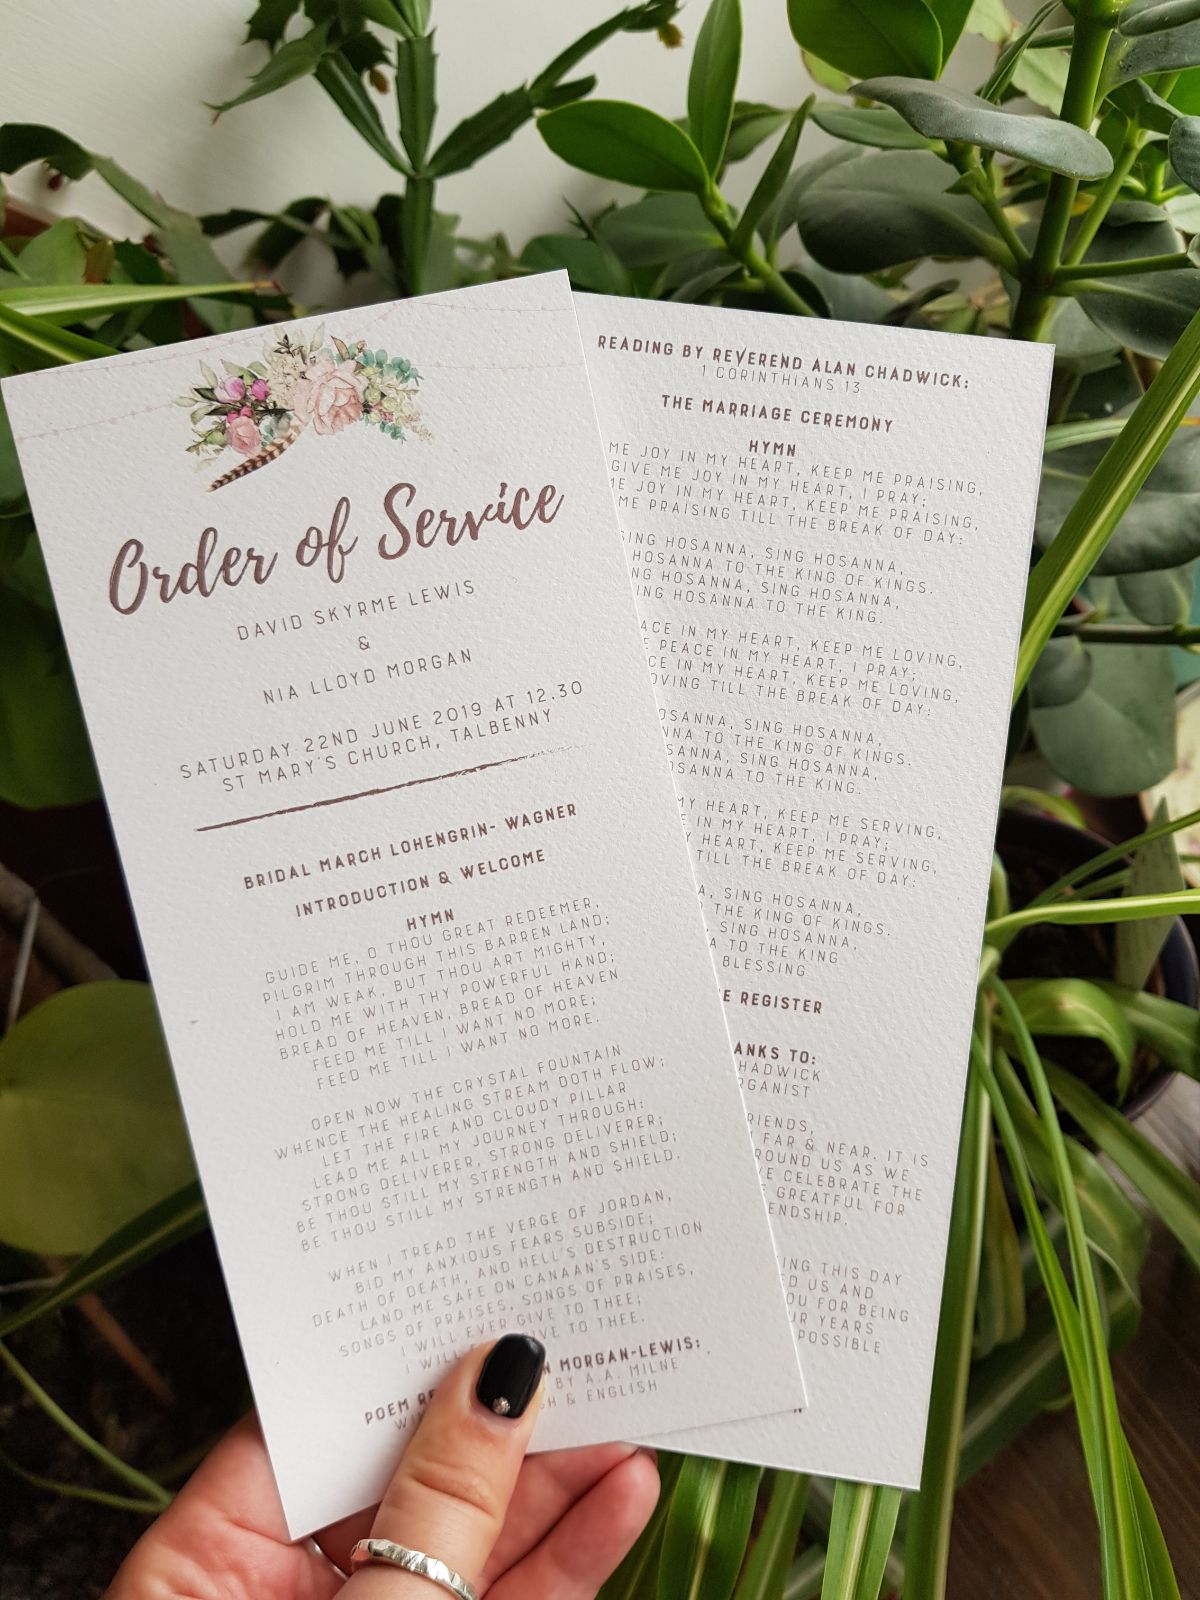 Order of Service
DAVID SKYRME LEWIS
&
NIA LLOYD MORGAN
SATURDAY 22ND JUNE 2019 AT 12.30
ST MARY'S CHURCH, TALBENNY
BRIDAL MARCH LOHENGRIN- WAGNER
INTRODUCTION & WELCOME
HYMN
GUIDE ME, O THOU GREAT REDEEMER,
PILGRIM THROUGH THIS BARREN LAND;
I AM WEAK, BUT THOU ART MIGHTY,
HOLD ME WITH THY POWERFUL HAND;
BREAD OF HEAVEN, BREAD OF HEAVEN
FEED ME TILL I WANT NO MORE;
FEED ME TILL I WANT NO MORE.
OPEN NOW THE CRYSTAL FOUNTAIN
WHENCE THE HEALING STREAM DOTH FLOW;
LET THE FIRE AND CLOUDY PILLAR
LEAD ME ALL MY JOURNEY THROUGH:
STRONG DELIVERER, STRONG DELIVERER;
BE THOU STILL MY STRENGTH AND SHIELD;
BE THOU STILL MY STRENGTH AND SHIELD.
WHEN I TREAD THE VERGE OF JORDAN,
BID MY ANXIOUS FEARS SUBSIDE;
DEATH OF DEATH, AND HELL'S DESTRUCTION
LAND ME SAFE ON CANAAN'S SIDE:
SONGS OF PRAISES, SONGS OF PRAISES,
I WILL EVER GIVE TO THEE;
I WILL TO THEE.
POEM MORGAN-LEWIS:
BY A.A. MILNE
& ENGLISH
READING BY REVEREND ALAN CHADWICK:
1 CORINTHIANS 13
THE MARRIAGE CEREMONY
HYMN
ME JOY IN MY HEART, KEEP ME PRAISING,
GIVE ME JOY IN MY HEART, I PRAY;
ME JOY IN MY HEART, KEEP ME PRAISING,
ME PRAISING TILL THE BREAK OF DAY:
SING HOSANNA, SING HOSANNA,
HOSANNA TO THE KING OF KINGS.
HOSANNA, SING HOSANNA,
HOSANNA TO THE KING.
IN MY HEART, KEEP ME LOVING,
PEACE IN MY HEART, I PRAY;
IN MY HEART, KEEP ME LOVING,
TILL THE BREAK OF DAY:
SING HOSANNA,
TO THE KING OF KINGS.
SING HOSANNA,
TO THE KING.
MY HEART, KEEP ME SERVING,
IN MY HEART, I PRAY;
HEART, KEEP ME SERVING,
TILL THE BREAK OF DAY:
SING HOSANNA,
THE KING OF KINGS.
SING HOSANNA,
TO THE KING
BLESSING
REGISTER
TO:
CHADWICK
ORGANIST
FRIENDS,
FAR & NEAR. IT IS
AROUND US AS WE
CELEBRATE THE
GREATFUL FOR
THIS DAY
US AND
YOU FOR BEING
YEARS
POSSIBLE